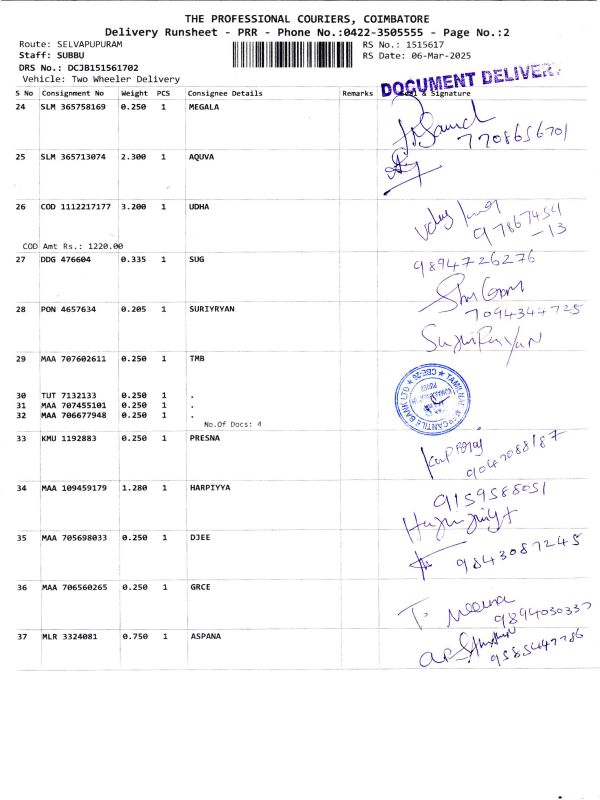 THE PROFESSIONAL COURIERS, COIMBATORE
Delivery Runsheet - PRR - Phone No.:0422-3505555 - Page No.:2
Route: SELVAPUPURAM RS No.: 1515617
Staff: SUBBU RS Date: 06-Mar-2025
DRS No.: DCJB151561702
Vehicle: Two Wheeler Delivery
DOCUMENT DELIVERY
S No Consignment No Weight PCS Consignee Details Remarks & Signature
24 SLM 365758169 0.250 1 MEGALA
7708656701
25 SLM 365713074 2.300 1 AQUVA
26 COD 1112217177 3.200 1 UDHA
97867454
-13
COD Amt Rs.: 1220.00
27 DDG 476604 0.335 1 SUG 9894726276
28 PON 4657634 0.205 1 SURIYRYAN 7094344725
29 MAA 707602611 0.250 1 TMB
30 TUT 7132133 0.250 1 .
31 MAA 707455101 0.250 1 .
32 MAA 706677948 0.250 1 .
No.Of Docs: 4
33 KMU 1192883 0.250 1 PRESNA
9047088187
34 MAA 109459179 1.280 1 HARPIYYA 9159588051
35 MAA 705698033 0.250 1 DJEE 9843087245
36 MAA 706560265 0.250 1 GRCE
T. Meena
9894030337
37 MLR 3324081 0.750 1 ASPANA
9585447786